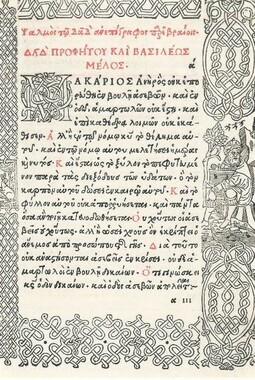 Ψαλμὸς τῷ Δα̅δ̅ ἀνεπίγραφος παρ' ἑβραίοις.
ΔΑ̅Δ̅ ΠΡΟΦΗΤΟΥ ΚΑΙ ΒΑΣΙΛΕΩΣ
ΜΕΛΟΣ. α
ΜΑΚΑΡΙΟΣ Ἀνὴρ ὃς οὐκ ἐπο
ρεύθη ἐν βουλῇ ἀσεβῶν. καὶ ἐν
ὁδῷ ἁμαρτωλῶν οὐκ ἔστη. καὶ
ἐπὶ καθέδρᾳ λοιμῶν οὐκ ἐκά
θισεν. Ἀλλ' ἢ ἐν τῷ νόμῳ κ̅υ̅ τὸ θέλημα αὐ
τοῦ. καὶ ἐν τῷ νόμῳ αὐτοῦ μελετήσει ἡμέρας
καὶ νυκτός. Καὶ ἔσται ὡς τὸ ξύλον τὸ πεφυτευμέ
νον παρὰ τὰς διεξόδους τῶν ὑδάτων. ὃ τὸν
καρπὸν αὐτοῦ δώσει ἐν καιρῷ αὐτοῦ. Καὶ τὸ
φύλλον αὐτοῦ οὐκ ἀπορρυήσεται. καὶ πάντα
ὅσα ἂν ποιῇ κατευοδωθήσεται. Οὐχ οὕτως οἱ ἀσε
βεῖς οὐχ οὕτως. ἀλλ' ἢ ὡσεὶ χνοῦς ὃν ἐκρίπτει ὁ
ἄνεμος ἀπὸ προσώπου τῆς γῆς. Διὰ τοῦτο
οὐκ ἀναστήσονται ἀσεβεῖς ἐν κρίσει. οὐδὲ ἁ
μαρτωλοὶ ἐν βουλῇ δικαίων. Ὅτι γινώσκει
κ̅ς̅ ὁδὸν δικαίων. καὶ ὁδὸς ἀσεβῶν ἀπολεῖται.
α iii